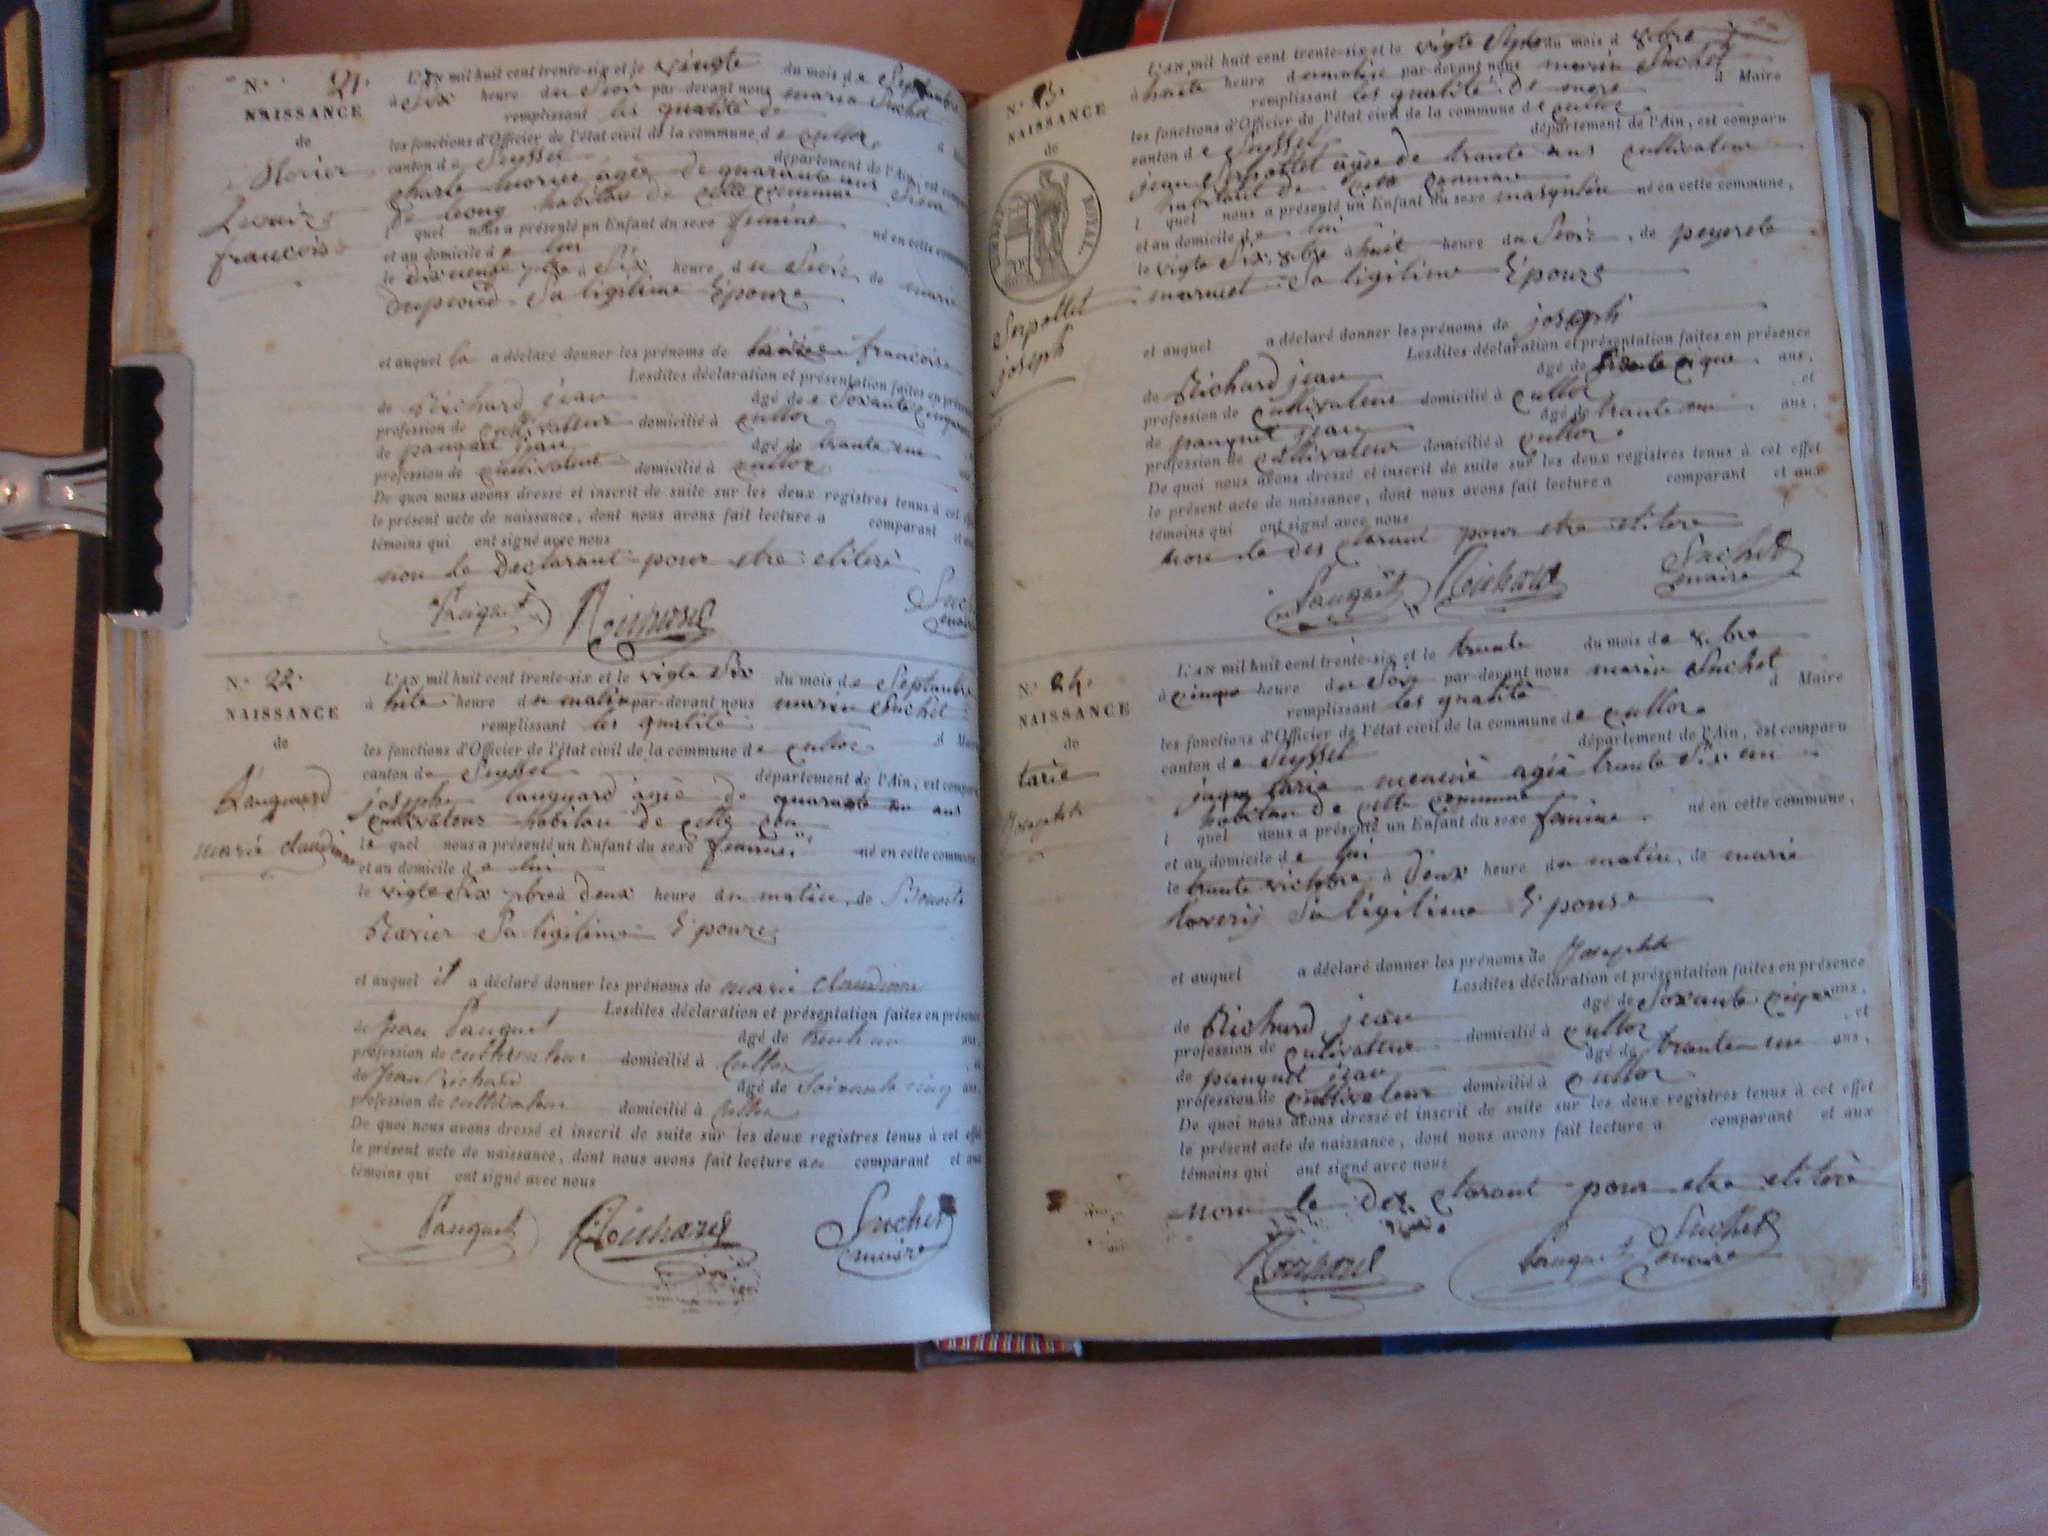 N.° 21.
NAISSANCE
de
Morier
Louize
francoise
L'AN mil huit cent trente-six et le vingte du mois de Septambre
à Six heure du Soir par-devant nous marin Suchet
remplissant les qualité de
les fonctions d'Officier de l'état civil de la commune de culloz
canton de Seyssel département de l'Ain, est
charle morier agée de quarante ans
habitan de cette commune
l quel nous a présenté un Enfant du sexe feminine né en cette
et au domicile de lui
le dixneuf à Six heure du Soir, de marie
Sa ligitime Epouze
et auquel la a déclaré donner les prénoms de francoise
Lesdites déclaration et présentation faites en
de Richard jean âgé de Soxante
profession de cultivateur domicilié à culloz
de pauquet jean âgé de trante une
profession de cultivateur domicilié à culloz
De quoi nous avons dressé et inscrit de suite sur les deux registres tenus à cet effet
le présent acte de naissance, dont nous avons fait lecture a comparant et aux
témoins qui ont signé avec nous
non le declarant pour etre eliteré
Pauquet Richard Suchet
N.° 22.
NAISSANCE
de
Lauguard
marie claudine
L'AN mil huit cent trente-six et le vigte Six du mois de Septambre
à heure du matin par-devant nous marin Suchet
remplissant les qualité
les fonctions d'Officier de l'état civil de la commune de culloz d Maire
canton de Seyssel département de l'Ain, est comparu
joseph lauguard agée de quarante un ans
cultivateur habitan de cette
le quel nous a présenté un Enfant du sexe feminine né en cette commune
et au domicile de lui
le vigte Six 7bre à deux heure du matin, de
Sa ligitime Epouze
et auquel il a déclaré donner les prénoms de marie claudine
Lesdites déclaration et présentation faites en présence
de Jean Pauquet âgé de trente un ans,
profession de cultivateur domicilié à Culloz
de Jean Richard âgé de Soixante cinq ans
profession de cultivateur domicilié à Culloz
De quoi nous avons dressé et inscrit de suite sur les deux registres tenus à cet effet
le présent acte de naissance, dont nous avons fait lecture au comparant et aux
témoins qui ont signé avec nous
Pauquet Richard Suchet
maire
N.° 23.
NAISSANCE
de
ROYAL.
Serpollet
joseph
L'AN mil huit cent trente-six et le vigte Sept du mois d 8.bre
à heure d matin par-devant nous marin Suchet
remplissant les qualité de d Maire
les fonctions d'Officier de l'état civil de la commune de culloz
canton de Seyssel département de l'Ain, est comparu
jean Serpollet agée de trante ans cultivateur
habitant de cette commune
l quel nous a présenté un Enfant du sexe masqulin né en cette commune,
et au domicile de lui
le vigte Six, 8bre à huit heure du Soir, de peyrete
Sa ligitime Epouze
et auquel a déclaré donner les prénoms de joseph
Lesdites déclaration et présentation faites en présence
de Richard jean âgé de ans,
profession de cultivateur domicilié à culloz et
de pauquet jean âgé de trante une ans,
profession de cultivateur domicilié à culloz
De quoi nous avons dressé et inscrit de suite sur les deux registres tenus à cet effet
le présent acte de naissance, dont nous avons fait lecture a comparant et aux
témoins qui ont signé avec nous
non le des clarant pour etre elitere
Pauquet Richard Suchet
maire
N.° 24.
NAISSANCE
de
tarie
Josephte
L'AN mil huit cent trente-six et le trante du mois de 8.bre
à cinque heure du Soir par-devant nous marin Suchet
remplissant les qualité d Maire
les fonctions d'Officier de l'état civil de la commune de culloz
canton de Seyssel département de l'Ain, est comparu
jaque tarie agée trante Six an
habitan de cette commune
l quel nous a présenté un Enfant du sexe feminine né en cette commune,
et au domicile de lui
le trante à deux heure du matin, de marie
Sa ligitime Epouse
et auquel a déclaré donner les prénoms de Josephte
Lesdites déclaration et présentation faites en présence
de Richard jean âgé de Soxante cinque ans,
profession de cultivateur domicilié à culloz et
de pauquet jean âgé de trante une ans,
profession de cultivateur domicilié à culloz
De quoi nous avons dressé et inscrit de suite sur les deux registres tenus à cet effet
le présent acte de naissance, dont nous avons fait lecture a comparant et aux
témoins qui ont signé avec nous
non le des clarant pour etre eliteré
Richard Pauquet Suchet
maire